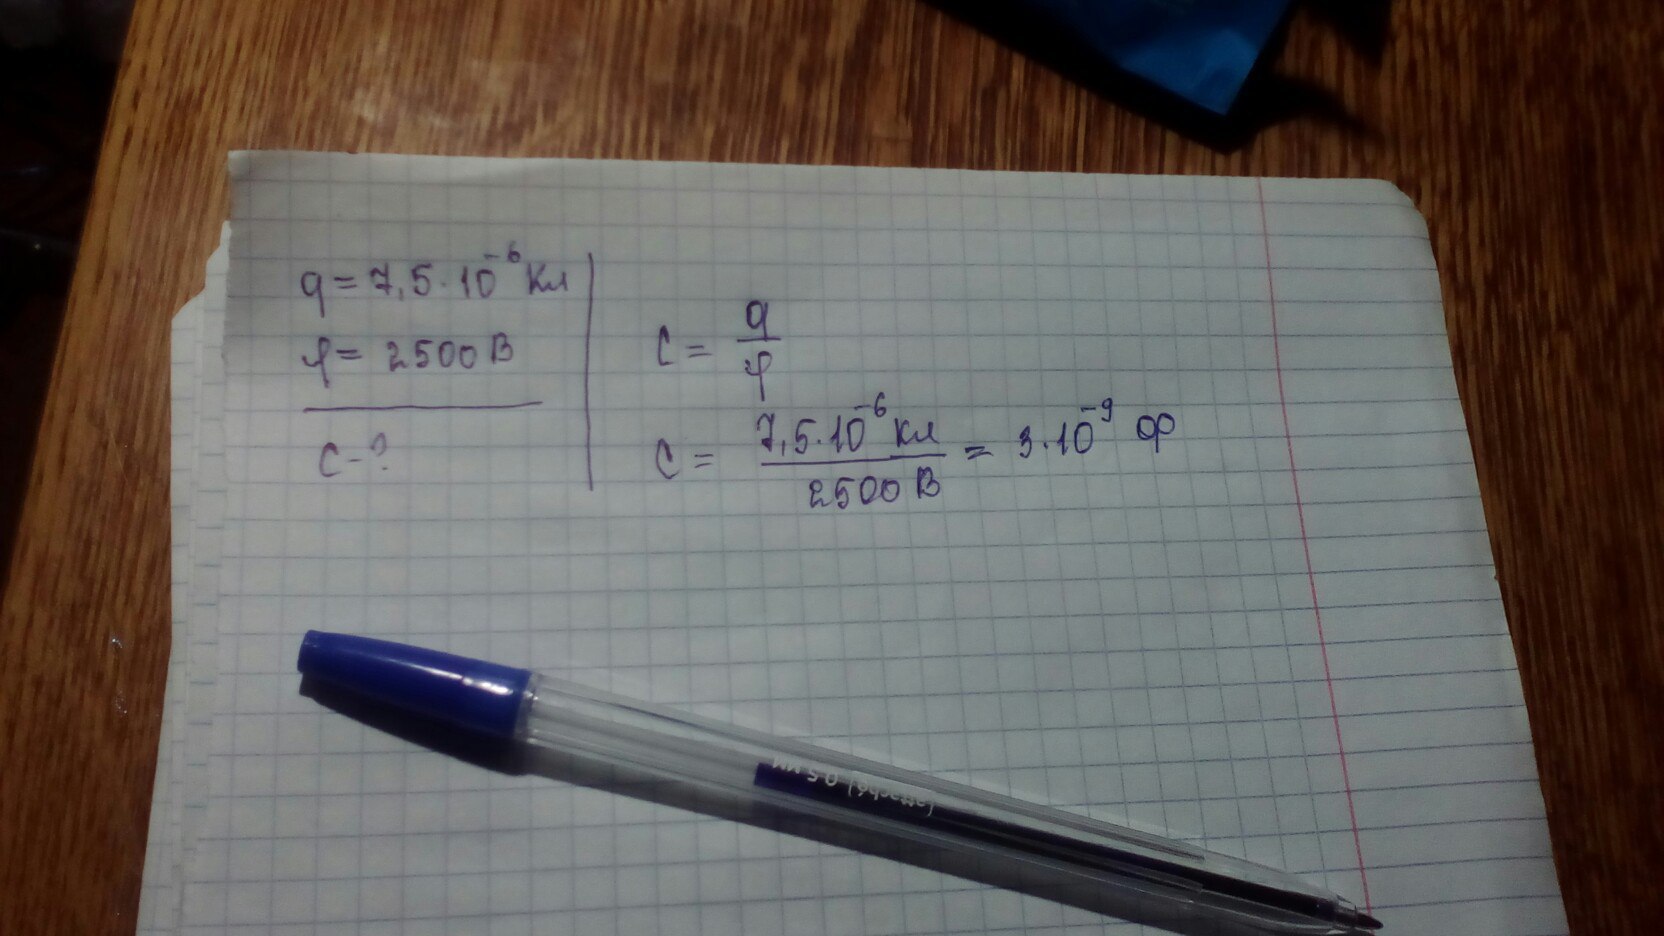 q = 7,5·10⁻⁶ Кл
φ = 2500 В
C - ?
C = q/φ
C = 7,5·10⁻⁶ Кл / 2500 В = 3·10⁻⁹ Ф
0.5 мм